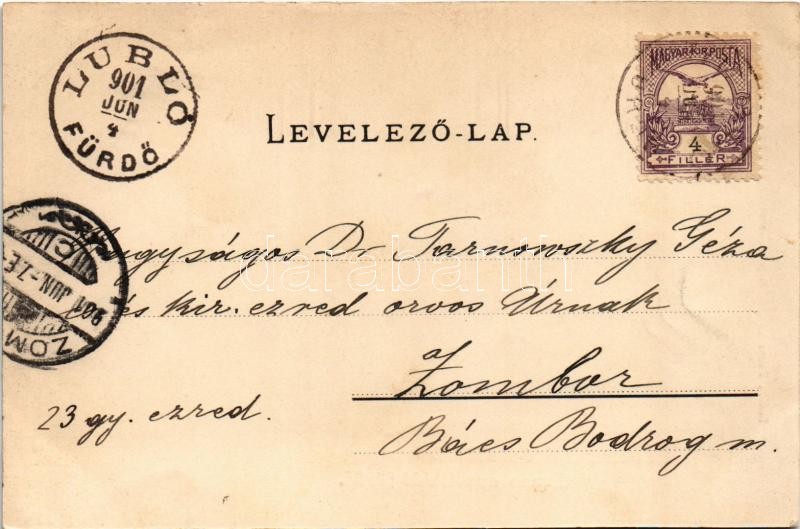 LUBLÓ
901
JUN
4
FÜRDŐ
LEVELEZŐ-LAP.
MAGYAR KIR. POSTA
4
FILLÉR
Nagyságos Dr Tarnowszky Géza
cs. és kir. ezred orvos Úrnak
Zombor
23 gy. ezred.
Bács Bodrog m.
901 JUN -7 E
ZOM
darabanth